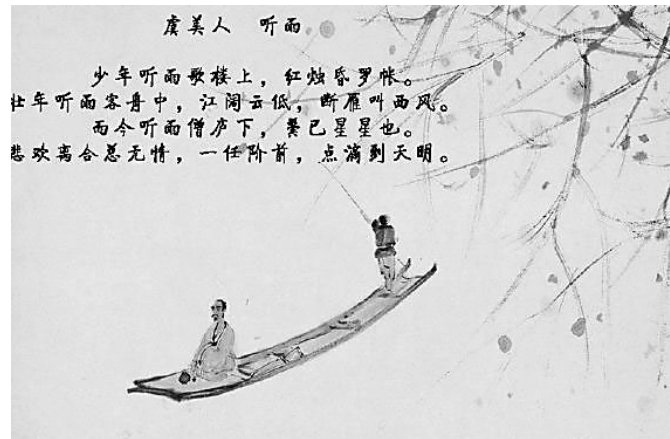 虞美人 听雨
少年听雨歌楼上，红烛昏罗帐。
壮年听雨客舟中，江阔云低，断雁叫西风。
而今听雨僧庐下，鬓已星星也。
悲欢离合总无情，一任阶前，点滴到天明。